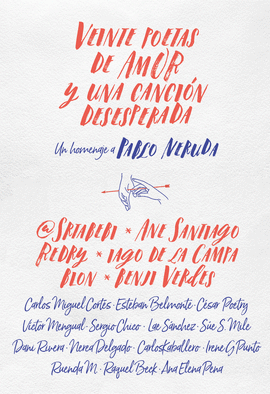 VEINTE POETAS
DE AMOR
Y UNA CANCIÓN
DESESPERADA
Un homenaje a PABLO NERUDA
@SRTABEBI * ANE SANTIAGO
REDRY * IAGO DE LA CAMPA
DION * BENJI VERDES
Carlos Miguel Cortés · Esteban Belmonte · César Poetry
Víctor Mengual · Sergio Chuco · Lae Sánchez · Sue S. Mile
Dani Rivera · Nerea Delgado · CarlosKaballero · Irene G Punto
Ruenda M. · Raquel Beck · Ana Elena Pena